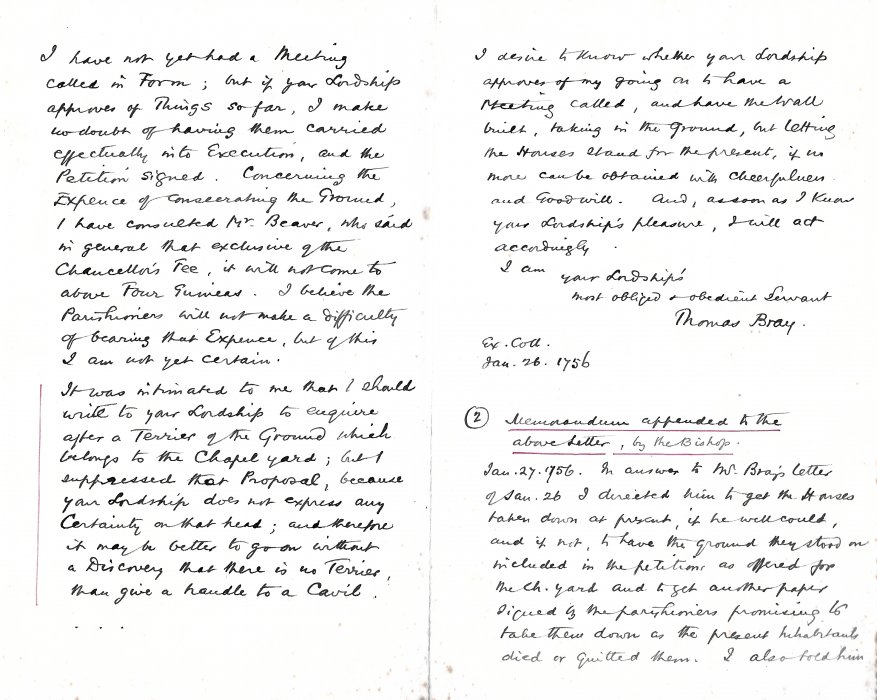 I have not yet had a Meeting
called in Form; but if your Lordship
approves of Things so far, I make
no doubt of having them carried
effectually into Execution, and the
Petition signed. Concerning the
Expence of consecrating the Ground,
I have consulted Mr. Beaver, who said
in general that exclusive of the
Chancellor's Fee, it will not come to
above Four Guineas. I believe the
Parishioners will not make a difficulty
of bearing that Expence, but of this
I am not yet certain.
It was intimated to me that I should
write to your Lordship to enquire
after a Terrier of the Ground which
belongs to the Chapel yard; but I
suppressed that Proposal, because
your Lordship does not express any
Certainty on that head; and therefore
it may be better to go on without
a Discovery that there is no Terrier,
than give a handle to a Cavil.
. . .
I desire to know whether your Lordship
approves of my going on to have a
Meeting called, and have the Wall
built, taking in the Ground, but letting
the Houses stand for the present, if no
more can be obtained with cheerfulness
and Goodwill. And, as soon as I know
your Lordship's pleasure, I will act
accordingly.
I am
your Lordship's
most obliged & obedient Servant
Thomas Bray.
Ex. Coll.
Jan. 26. 1756
(2) Memorandum appended to the
above letter, by the Bishop.
Jan. 27. 1756. In answer to Mr. Bray's letter
of Jan. 26 I directed him to get the Houses
taken down at present, if he well could,
and if not, to have the ground they stood on
included in the petition as offered for
the Ch. yard and to get another paper
signed by the parishioners promising to
take them down as the present Inhabitants
died or quitted them. I also told him